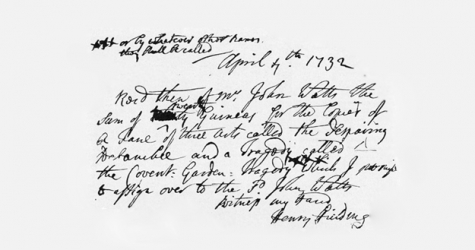 or by whatsoever other name
they shall be called
April 4th 1732
Rec'd then of Mr. John Watts the
Sum of twenty Guineas for the Copies of
a Farce of three Acts called the Despairing
Debauchee and a Tragedy called
the Covent-Garden-Tragedy which I promise
to assign over to the Sd. John Watts
Witness my Hand
Henry Fielding